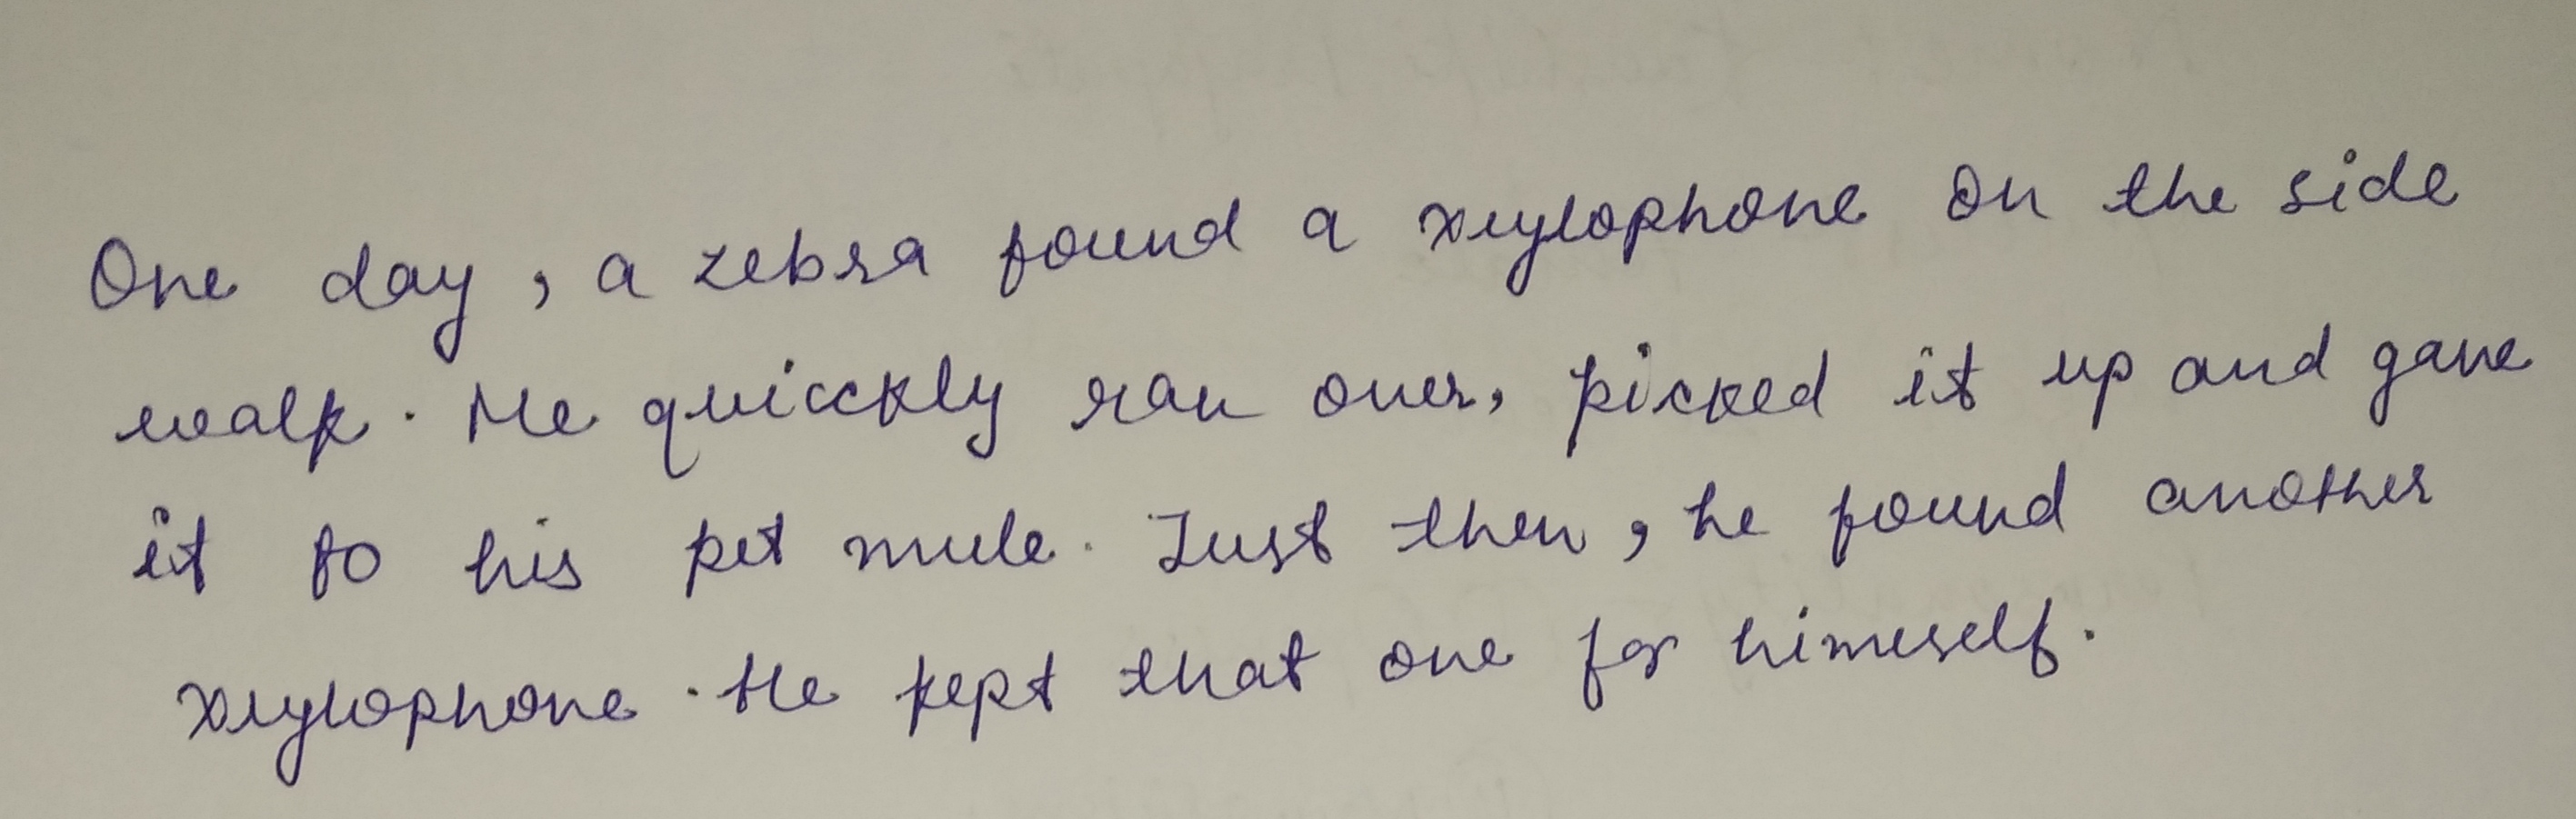 One day, a zebra found a xylophone on the side
walk. He quicckly ran over, picked it up and gave
it to his pet mule. Just then, he found another
xylophone. He kept that one for himself.